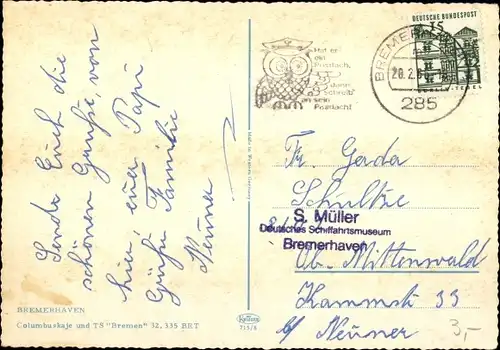 Sende Euch die
schönen Grüße, von
hier, euer Papi
Grüße Familie
Neuner
BREMERHAVEN
Columbuskaje und TS "Bremen" 32,335 BRT
Krüger
715/8
Hat er
ein
Postfach,
dann
Schreib'
an sein
Postfach!
BREMERHAVEN
20.2.6
285
DEUTSCHE BUNDESPOST
15
BERLIN-TEGEL
Fr. Gerda
Schultze
S. Müller
Deutsches Schiffahrtsmuseum
Bremerhaven
Ob. Mittenwald
Kammstr 33
b/ Neuner
3,-